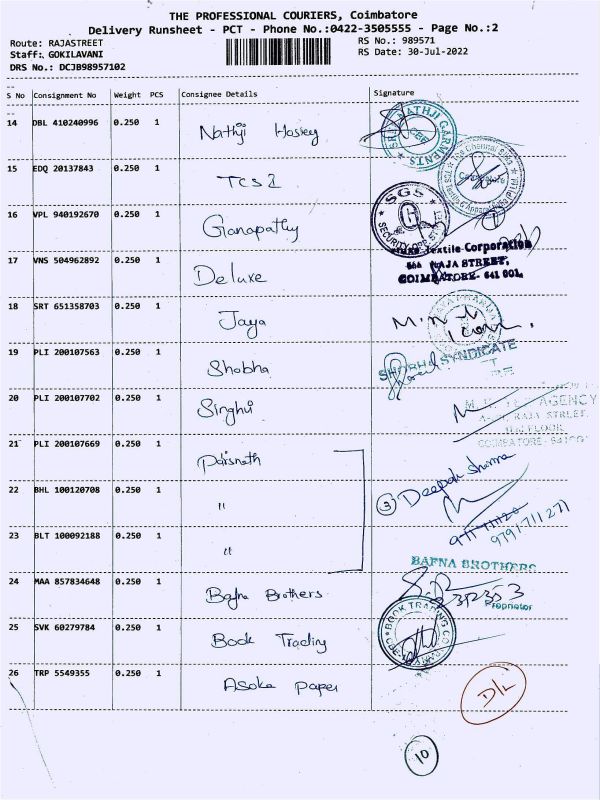 THE PROFESSIONAL COURIERS, Coimbatore
Delivery Runsheet - PCT - Phone No.:0422-3505555 - Page No.:2
Route: RAJASTREET
RS No.: 989571
Staff: GOKILAVANI
RS Date: 30-Jul-2022
DRS No.: DCJB98957102
S No Consignment No Weight PCS Consignee Details Signature
14 DBL 410240996 0.250 1 Nathji Hosiey
GARMENTS
15 EDQ 20137843 0.250 1 TCS
16 VPL 940192670 0.250 1 Ganapathy
SGS
SECURITY
17 VNS 504962892 0.250 1 Deluxe
Textile Corporation
RAJA STREET,
COIMBATORE - 641 001.
18 SRT 651358703 0.250 1 Jaya
19 PLI 200107563 0.250 1 Shobha
SHOBHA SYNDICATE
20 PLI 200107702 0.250 1 Singhvi
AGENCY
RAJA STREET,
FLOOR
COIMBATORE - 641001
21 PLI 200107669 0.250 1 Parsnath
22 BHL 100120708 0.250 1 "
3 Deepak Sharma
9791711271
23 BLT 100092188 0.250 1 "
24 MAA 857834648 0.250 1 Bafna Brothers
BAFNA BROTHERS
Proprietor
25 SVK 60279784 0.250 1 Book Trading
BOOK TRADING CO
26 TRP 5549355 0.250 1 Asoka paper
D/L
10